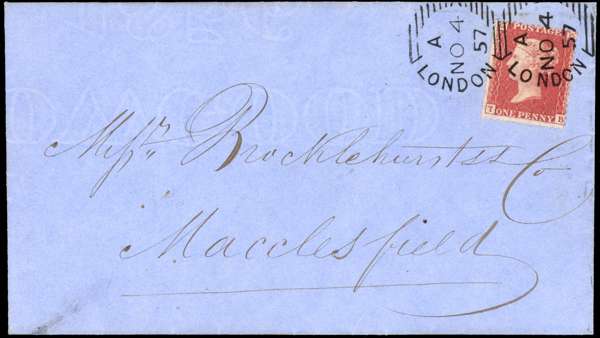 A
NO 4
57
LONDON
A
NO 4
57
LONDON
POSTAGE
ONE PENNY
T B
Messrs Brocklehursts & Co
Macclesfield